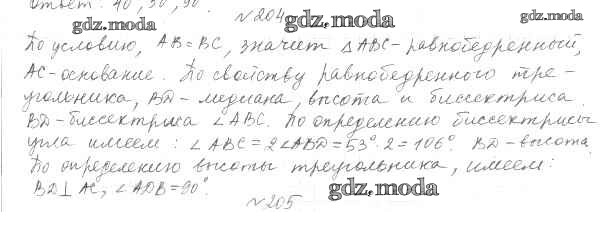 Ответ: 40°, 50°, 90°.
№204 gdz.moda
gdz.moda
По условию, AB=BC, значит △ABC-равнобедренный,
AC-основание. По свойству равнобедренного тре-
угольника, BD-медиана, высота и биссектриса.
BD-биссектриса ∠ABC. По определению биссектрисы
угла имеем: ∠ABC=2∠ABD=53°·2=106°. BD-высота.
По определению высоты треугольника, имеем:
BD⊥AC, ∠ADB=90°.
gdz.moda
№205